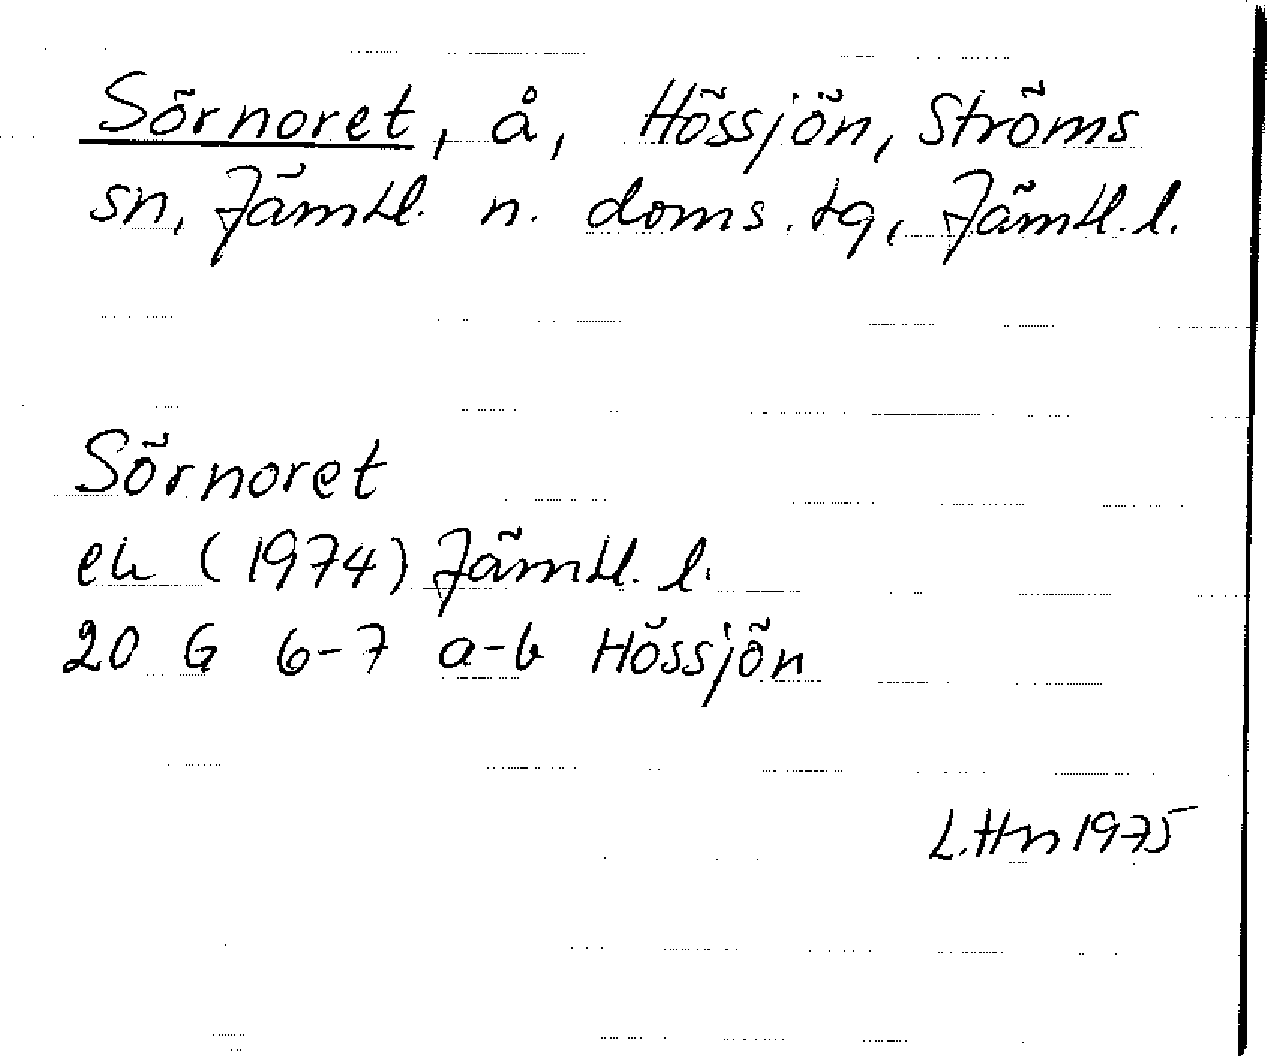 Sörnoret, å, Hössjön, Ströms
sn, Jämtl. n. doms. tg, Jämtl. l.
Sörnoret
ek (1974) Jämtl. l.
20 G 6-7 a-b Hössjön
L.Hn 1975